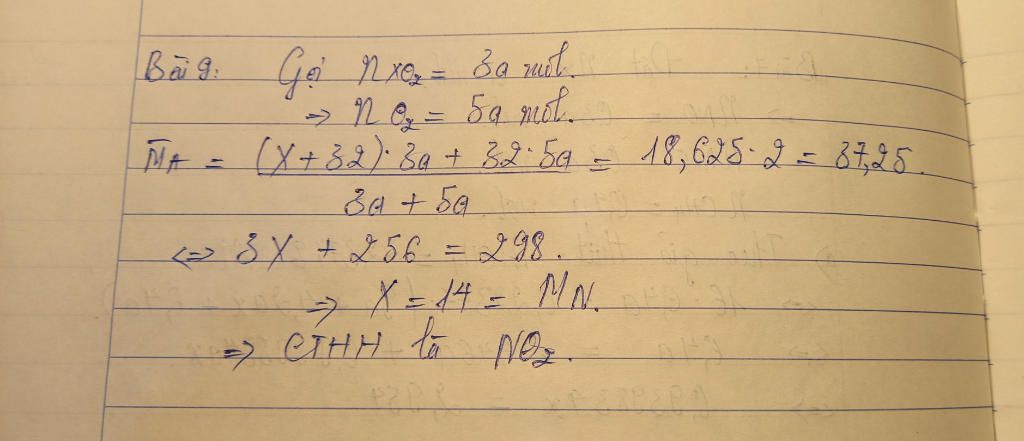 Bài 9: Gọi n XO₂ = 3a mol.
⇒ n O₂ = 5a mol.
M̅A = (X + 32) · 3a + 32 · 5a / 3a + 5a = 18,625 · 2 = 37,25.
⇔ 3X + 256 = 298.
⇒ X = 14 = MN.
⇒ CTHH là NO₂.